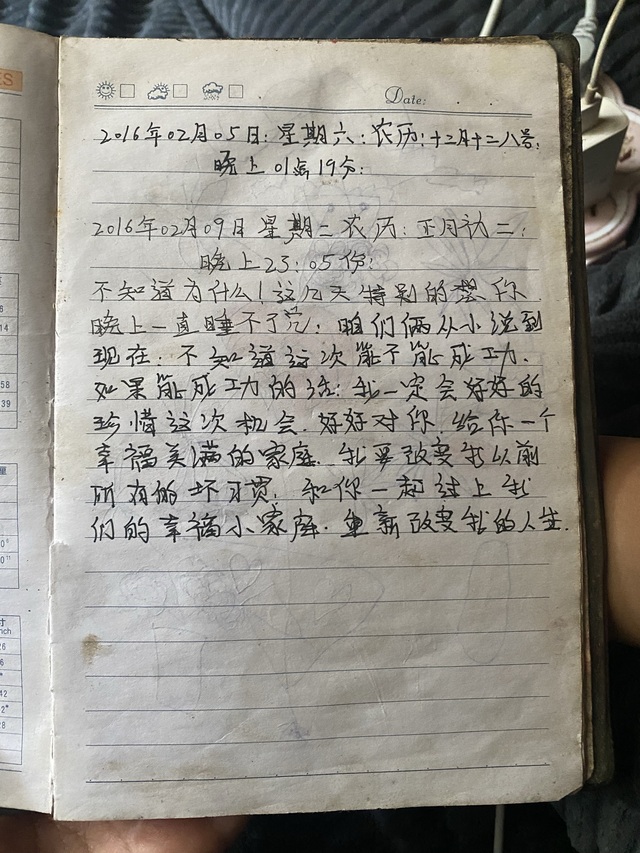 Date:
2016年02月05日:星期六:农历:十二月十二八号:
晚上01点19分:
2016年02月09日星期二农历:正月初二:
晚上23:05份:
不知道为什么!这几天特别的想你
晚上一直睡不了觉:咱们俩从小说到
现在:不知道这次能不能成功.
如果能成功的话:我一定会好好的
珍惜这次机会.好好对你.给你一个
幸福美满的家庭.我要改变我以前
所有的坏习惯.和你一起过上我
们的幸福小家庭.重新改变我的人生.
ES
14
58
39
寸
nch
26
42
28